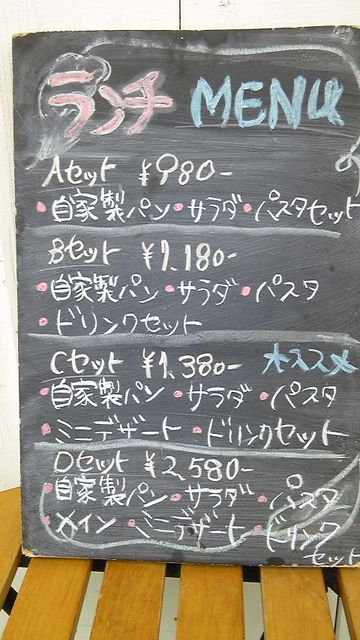 ランチ MENU
Aセット ¥980-
・自家製パン・サラダ・パスタセット
Bセット ¥1,180-
・自家製パン・サラダ・パスタ
・ドリンクセット
Cセット ¥1,380- オススメ
・自家製パン・サラダ・パスタ
・ミニデザート・ドリンクセット
Dセット ¥2,580-
・自家製パン・サラダ・パスタ
・メイン・ミニデザート・ドリンク
セット